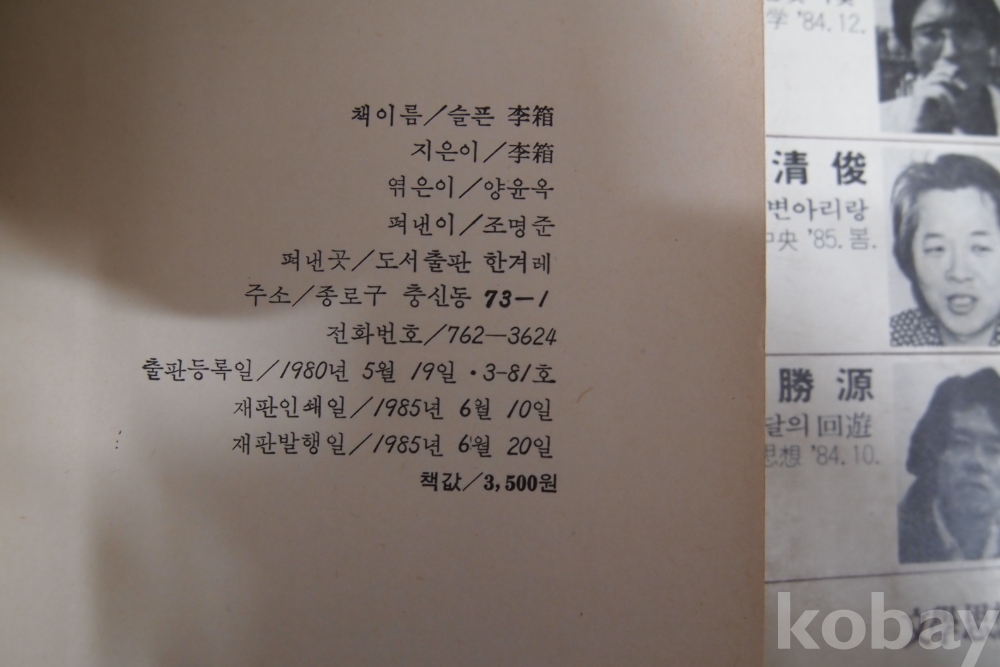 책이름/슬픈 李箱
지은이/李箱
엮은이/양윤옥
펴낸이/조명준
펴낸곳/도서출판 한겨레
주소/종로구 충신동 73-1
전화번호/762-3624
출판등록일/1980년 5월 19일·3-81호
재판인쇄일/1985년 6월 10일
재판발행일/1985년 6월 20일
책값/3,500원
学 '84.12.
清俊
변아리랑
中央 '85.봄.
勝源
달의 回遊
思想 '84.10.
kobay